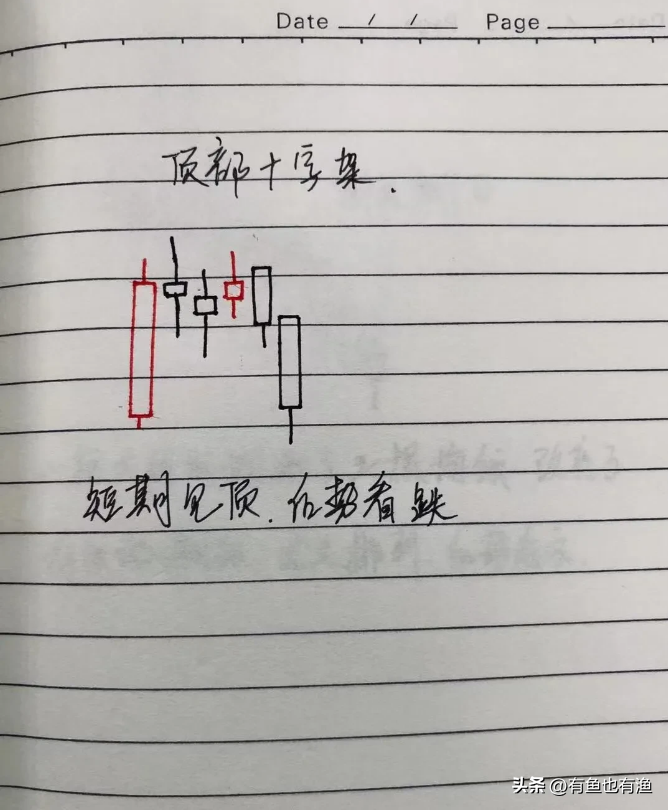 Date / / Page
顶部十字架.
短期见顶.后势看跌
头条 @有鱼也有渔